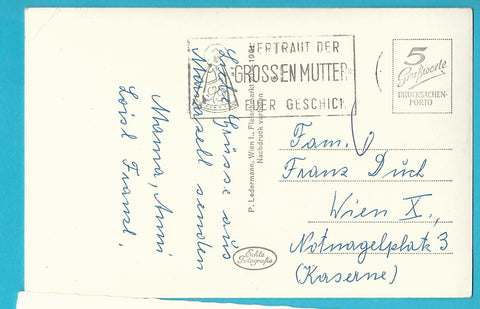 Liebe Grüsse aus
Mariazell senden
Mama, Anni
Loisl Franzl.
P. Ledermann, Wien I., Fleischmarkt
Nachdruck verboten
VERTRAUT DER
GROSSEN MUTTER
EUER GESCHICK
5
Grußworte
DRUCKSACHEN-
PORTO
Fam.
Franz Duch
Wien X.,
Notnagelplatz 3
(Kaserne)
Echte
Fotografie